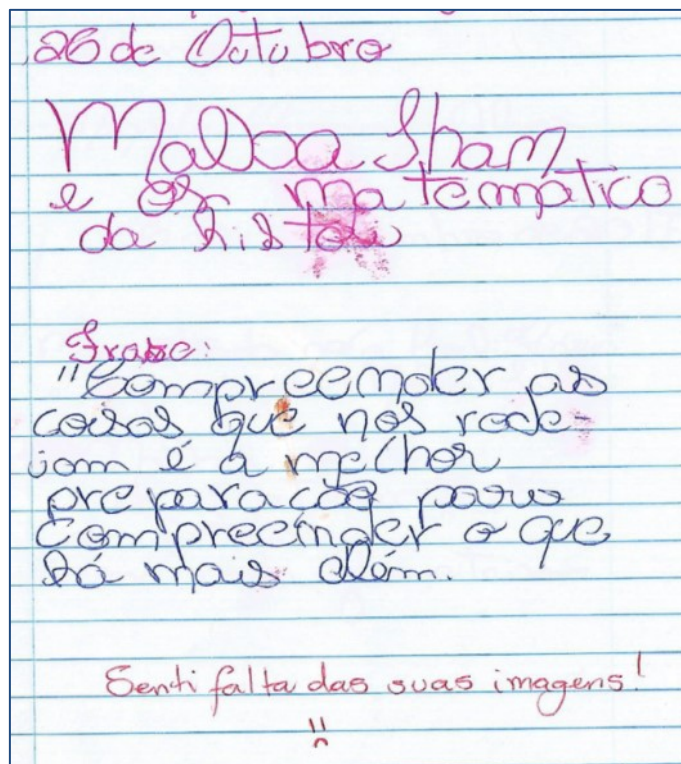 26 de Outubro
Malba Tham
e os matemático
da histo
Frase:
"Compreender as
coisas que nos rode-
iam é a melhor
preparação para
compreender o que
há mais além.
Senti falta das suas imagens!